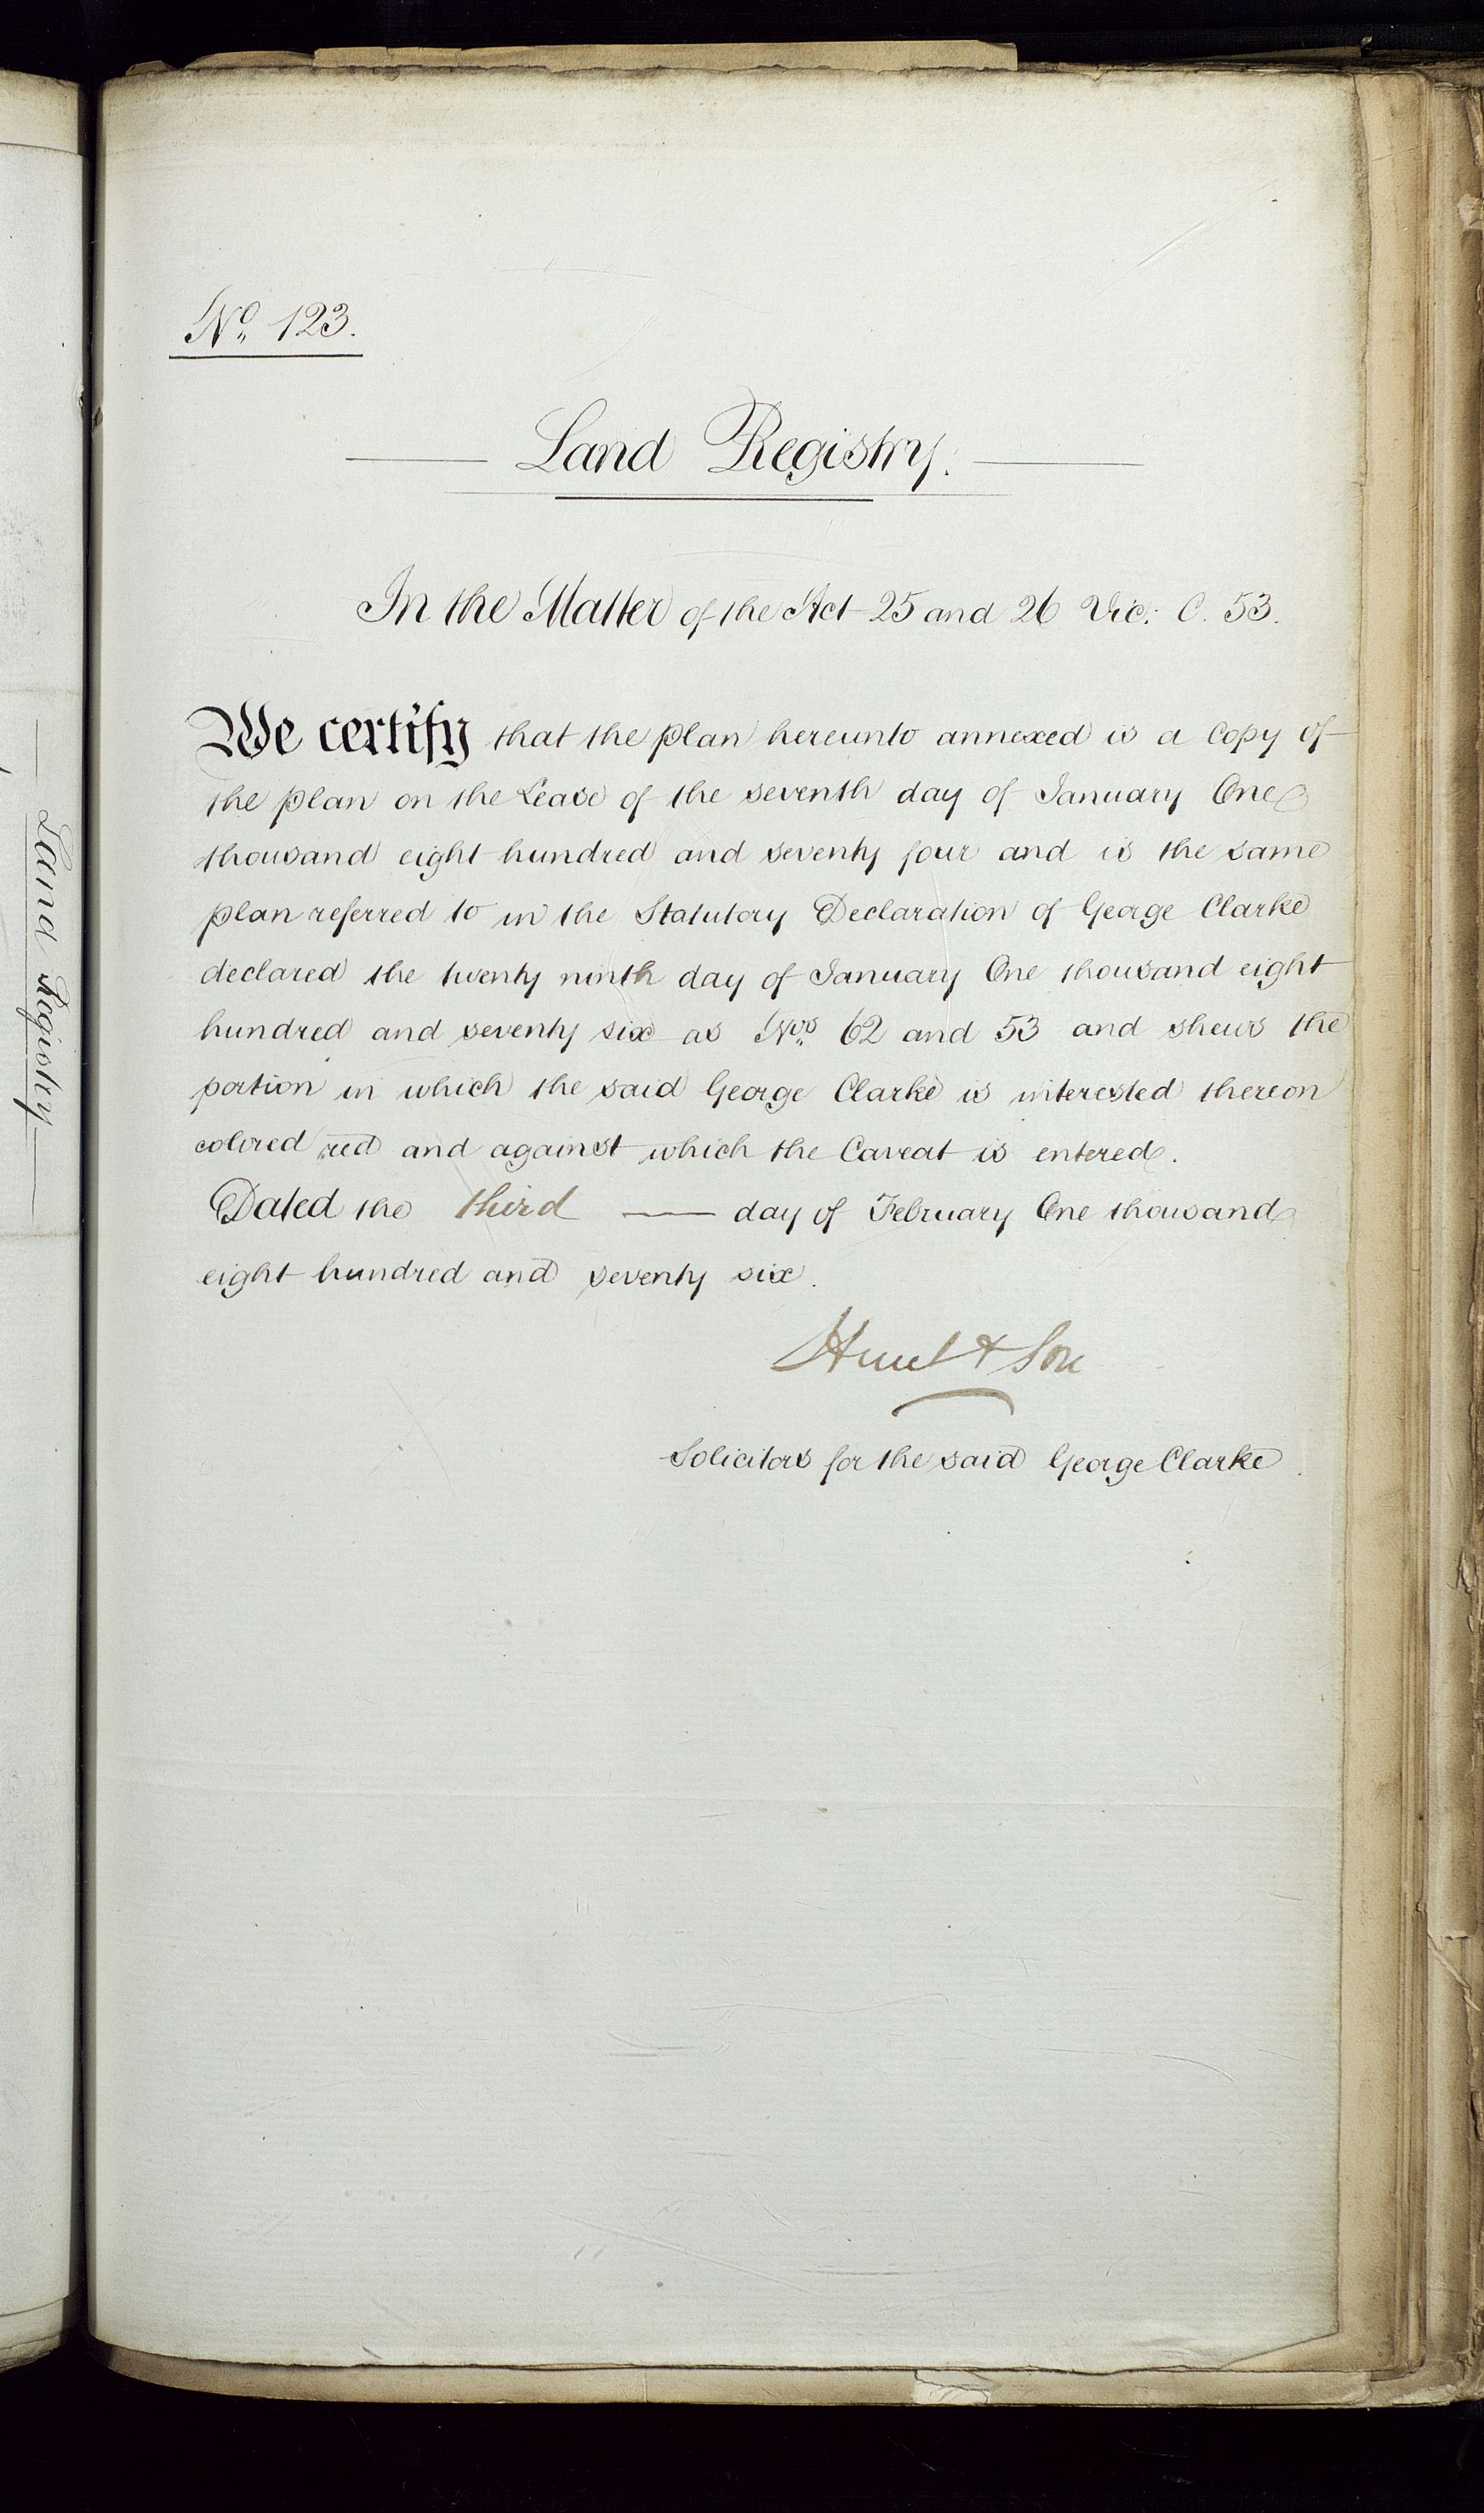 No. 123.
Land Registry.
In the Matter of the Act 25 and 26 Vic: C. 53.
We certify that the plan hereunto annexed is a copy of
the plan on the Lease of the seventh day of January One
thousand eight hundred and seventy four and is the same
plan referred to in the Statutory Declaration of George Clarke
declared the twenty ninth day of January One thousand eight
hundred and seventy six as Nos. 62 and 53 and shews the
portion in which the said George Clarke is interested thereon
colored red and against which the Caveat is entered.
Dated the third — day of February One thousand
eight hundred and seventy six.
Hunt & Son
Solicitors for the said George Clarke
Land Registry